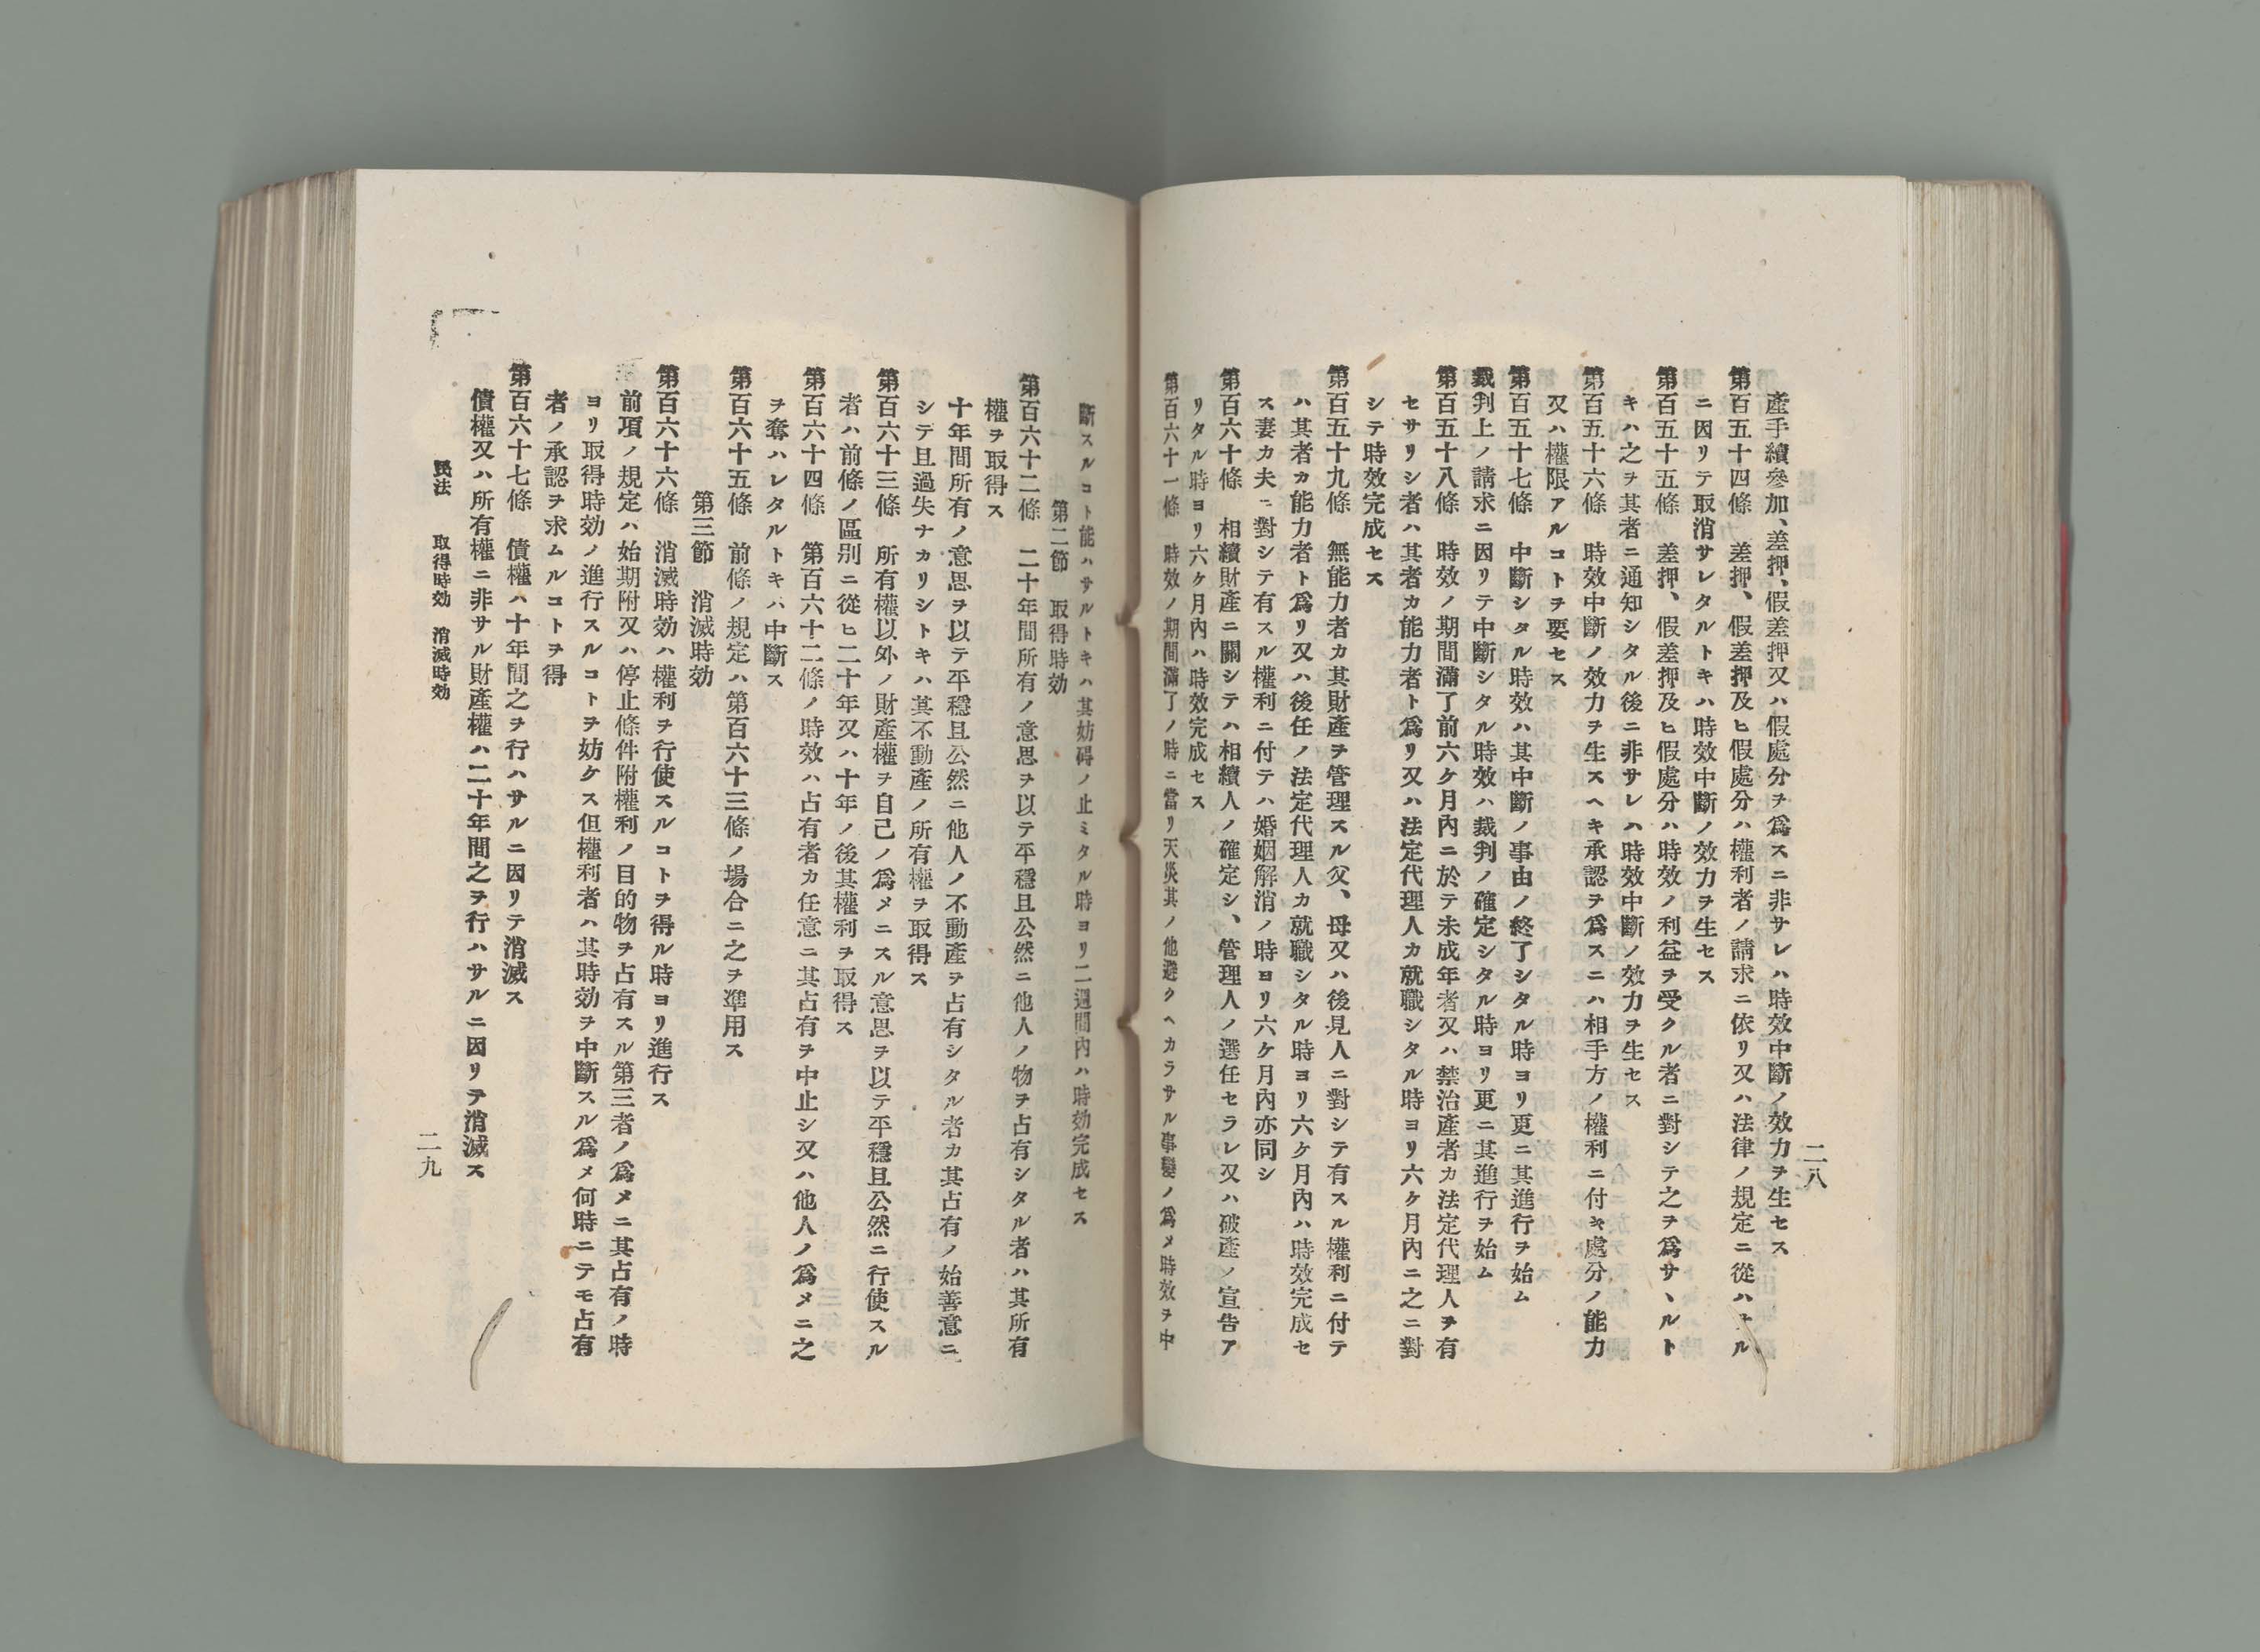 二八
產手續參加、差押、假差押又ハ假處分ヲ爲スニ非サレハ時效中斷ノ效力ヲ生セス
第百五十四條　差押、假差押及ヒ假處分ハ權利者ノ請求ニ依リ又ハ法律ノ規定ニ從ハサル
ニ因リテ取消サレタルトキハ時效中斷ノ效力ヲ生セス
第百五十五條　差押、假差押及ヒ假處分ハ時效ノ利益ヲ受クル者ニ對シテ之ヲ爲サヽルト
キハ之ヲ其者ニ通知シタル後ニ非サレハ時效中斷ノ效力ヲ生セス
第百五十六條　時效中斷ノ效力ヲ生スヘキ承認ヲ爲スニハ相手方ノ權利ニ付キ處分ノ能力
又ハ權限アルコトヲ要セス
第百五十七條　中斷シタル時效ハ其中斷ノ事由ノ終了シタル時ヨリ更ニ其進行ヲ始ム
裁判上ノ請求ニ因リテ中斷シタル時效ハ裁判ノ確定シタル時ヨリ更ニ其進行ヲ始ム
第百五十八條　時效ノ期間滿了前六ケ月內ニ於テ未成年者又ハ禁治產者カ法定代理人ヲ有
セサリシ者ハ其者カ能力者ト爲リ又ハ法定代理人カ就職シタル時ヨリ六ケ月內ニ之ニ對
シテ時效完成セス
第百五十九條　無能力者カ其財產ヲ管理スル父、母又ハ後見人ニ對シテ有スル權利ニ付テ
ハ其者カ能力者ト爲リ又ハ後任ノ法定代理人カ就職シタル時ヨリ六ケ月內ハ時效完成セ
ス妻カ夫ニ對シテ有スル權利ニ付テハ婚姻解消ノ時ヨリ六ケ月內亦同シ
第百六十條　相續財產ニ關シテハ相續人ノ確定シ、管理人ノ選任セラレ又ハ破產ノ宣告ア
リタル時ヨリ六ケ月內ハ時效完成セス
第百六十一條　時效ノ期間滿了ノ時ニ當リ天災其ノ他避クヘカラサル事變ノ爲メ時效ヲ中
斷スルコト能ハサルトキハ其妨碍ノ止ミタル時ヨリ二週間內ハ時効完成セス
第二節　取得時効
第百六十二條　二十年間所有ノ意思ヲ以テ平穩且公然ニ他人ノ物ヲ占有シタル者ハ其所有
權ヲ取得ス
十年間所有ノ意思ヲ以テ平穩且公然ニ他人ノ不動產ヲ占有シタル者カ其占有ノ始善意ニ
シテ且過失ナカリシトキハ其不動產ノ所有權ヲ取得ス
第百六十三條　所有權以外ノ財產權ヲ自己ノ爲メニスル意思ヲ以テ平穩且公然ニ行使スル
者ハ前條ノ區別ニ從ヒ二十年又ハ十年ノ後其權利ヲ取得ス
第百六十四條　第百六十二條ノ時效ハ占有者カ任意ニ其占有ヲ中止シ又ハ他人ノ爲メニ之
ヲ奪ハレタルトキハ中斷ス
第百六十五條　前條ノ規定ハ第百六十三條ノ場合ニ之ヲ準用ス
第三節　消滅時効
第百六十六條　消滅時効ハ權利ヲ行使スルコトヲ得ル時ヨリ進行ス
前項ノ規定ハ始期附又ハ停止條件附權利ノ目的物ヲ占有スル第三者ノ爲メニ其占有ノ時
ヨリ取得時効ノ進行スルコトヲ妨ケス但權利者ハ其時効ヲ中斷スル爲メ何時ニテモ占有
者ノ承認ヲ求ムルコトヲ得
第百六十七條　債權ハ十年間之ヲ行ハサルニ因リテ消滅ス
債權又ハ所有權ニ非サル財產權ハ二十年間之ヲ行ハサルニ因リテ消滅ス
民法　取得時効　消滅時効
二九